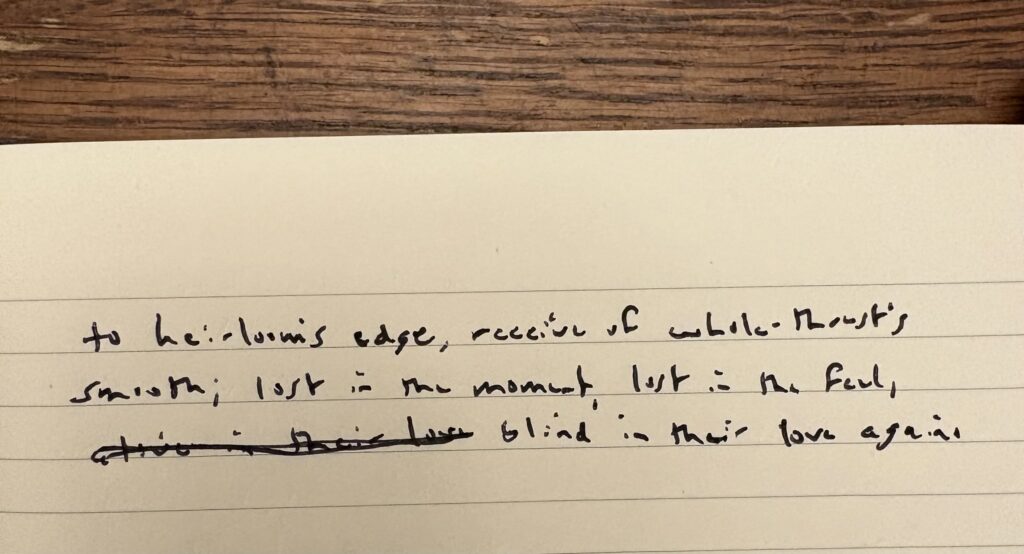 to heirloom's edge, receive of whole-thrust's
smooth; lost in the moment, lost in the feel,
alive in their love blind in their love again.